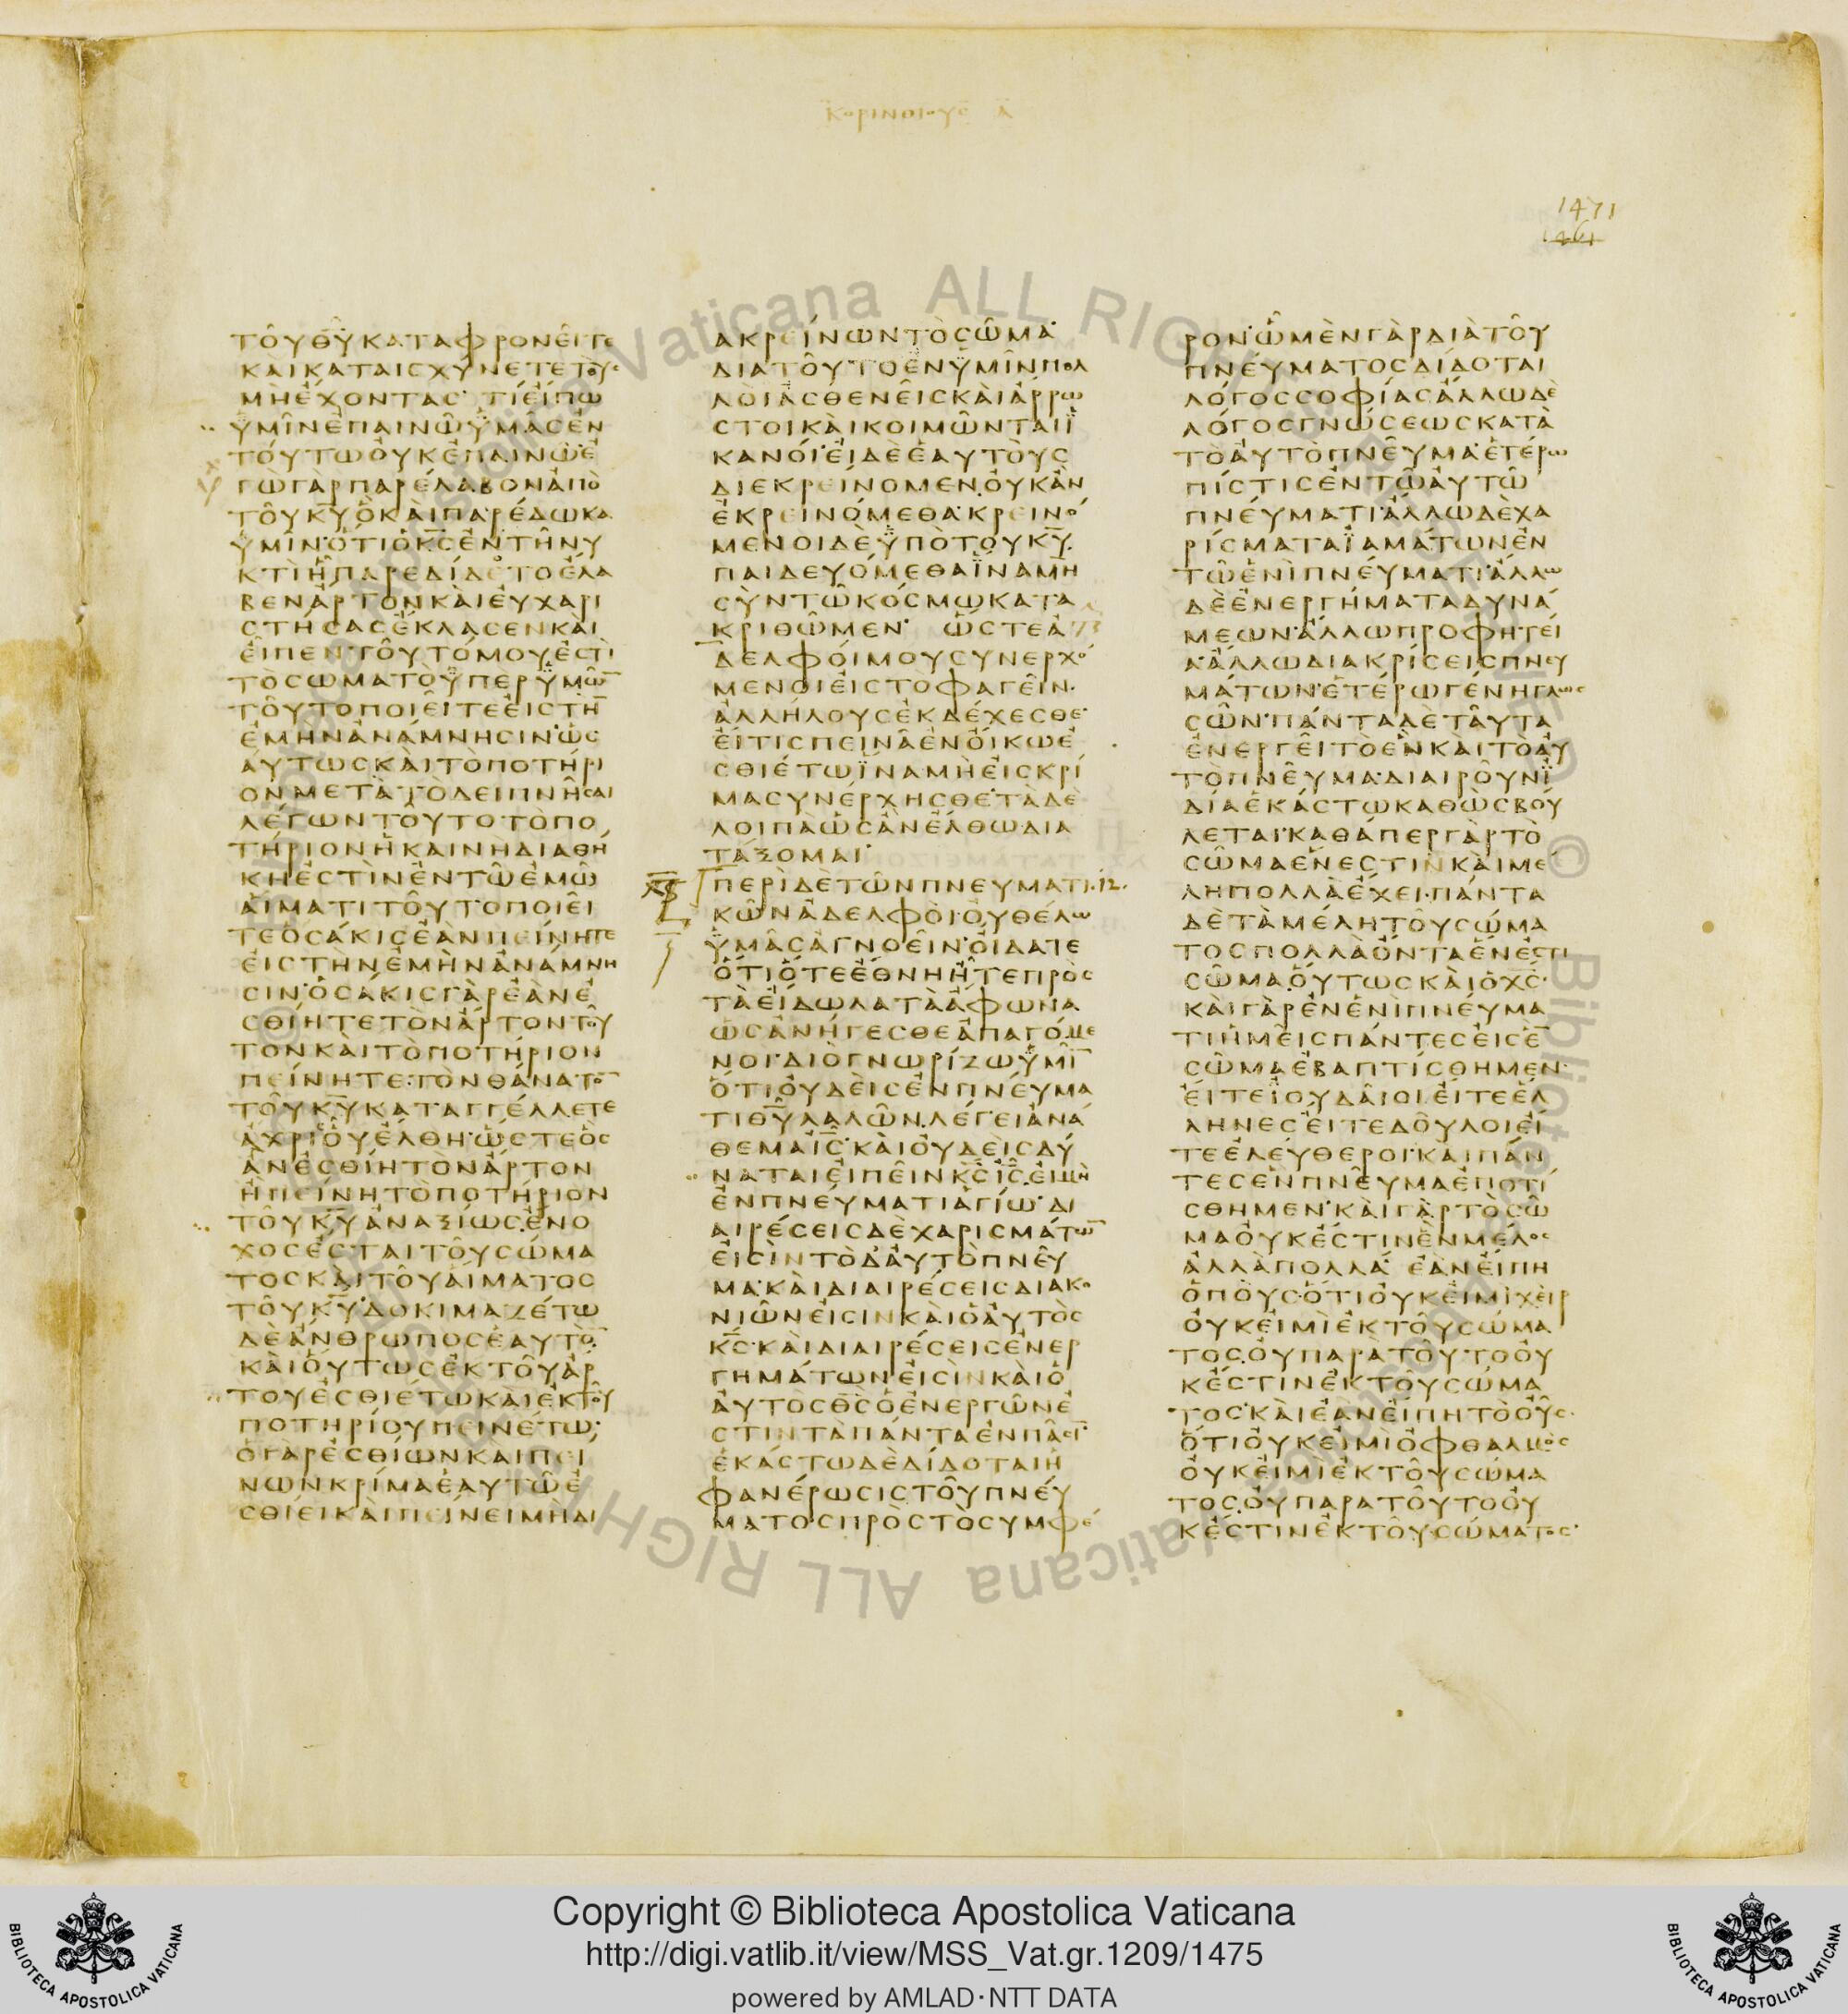 ΚΟΡΙΝΘΙΟΥϹ Α
1471
1461
ΤΟΥΘΥΚΑΤΑΦΡΟΝΕΙΤΕ
ΚΑΙΚΑΤΑΙϹΧΥΝΕΤΕΤΟΥϹ
ΜΗΕΧΟΝΤΑϹ ΤΙΕΙΠΩ
ΥΜΙΝΕΠΑΙΝΩΥΜΑϹΕΝ
ΤΟΥΤΩΟΥΚΕΠΑΙΝΩΕ
ΓΩΓΑΡΠΑΡΕΛΑΒΟΝΑΠΟ
ΤΟΥΚΥΟΚΑΙΠΑΡΕΔΩΚΑ
ΥΜΙΝΟΤΙΟΚϹΕΝΤΗΝΥ
ΚΤΙΗΠΑΡΕΔΙΔΕΤΟΕΛΑ
ΒΕΝΑΡΤΟΝΚΑΙΕΥΧΑΡΙ
ϹΤΗϹΑϹΕΚΛΑϹΕΝΚΑΙ
ΕΙΠΕΝΤΟΥΤΟΜΟΥΕϹΤΙ
ΤΟϹΩΜΑΤΟΥΠΕΡΥΜΩ̅
ΤΟΥΤΟΠΟΙΕΙΤΕΕΙϹΤΗ̅
ΕΜΗΝΑΝΑΜΝΗϹΙΝΩϹ
ΑΥΤΩϹΚΑΙΤΟΠΟΤΗΡΙ
ΟΝΜΕΤΑΤΟΔΕΙΠΝΗϹΑΙ
ΛΕΓΩΝΤΟΥΤΟΤΟΠΟ
ΤΗΡΙΟΝΗΚΑΙΝΗΔΙΑΘΗ
ΚΗΕϹΤΙΝΕΝΤΩΕΜΩ
ΑΙΜΑΤΙΤΟΥΤΟΠΟΙΕΙ
ΤΕΟϹΑΚΙϹΕΑΝΠΕΙΝΗΤΕ
ΕΙϹΤΗΝΕΜΗΝΑΝΑΜΝΗ
ϹΙΝΟϹΑΚΙϹΓΑΡΕΑΝΕ
ϹΘΙΗΤΕΤΟΝΑΡΤΟΝΤΟΥ
ΤΟΝΚΑΙΤΟΠΟΤΗΡΙΟΝ
ΠΕΙΝΗΤΕΤΟΝΘΑΝΑΤΟ̅
ΤΟΥΚΥΚΑΤΑΓΓΕΛΛΕΤΕ
ΑΧΡΙΟΥΕΛΘΗΩϹΤΕΟϹ
ΑΝΕϹΘΙΗΤΟΝΑΡΤΟΝ
ΗΠΕΙΝΗΤΟΠΟΤΗΡΙΟΝ
ΤΟΥΚΥΑΝΑΞΙΩϹΕΝΟ
ΧΟϹΕϹΤΑΙΤΟΥϹΩΜΑ
ΤΟϹΚΑΙΤΟΥΑΙΜΑΤΟϹ
ΤΟΥΚΥΔΟΚΙΜΑΖΕΤΩ
ΔΕΑΝΘΡΩΠΟϹΕΑΥΤΟ̅
ΚΑΙΟΥΤΩϹΕΚΤΟΥΑΡ
ΤΟΥΕϹΘΙΕΤΩΚΑΙΕΚΤΟΥ
ΠΟΤΗΡΙΟΥΠΕΙΝΕΤΩ
ΟΓΑΡΕϹΘΙΩΝΚΑΙΠΕΙ
ΝΩΝΚΡΙΜΑΕΑΥΤΩΕ
ϹΘΙΕΙΚΑΙΠΕΙΝΕΙΜΗΔΙ
ΑΚΡΕΙΝΩΝΤΟϹΩΜΑ
ΔΙΑΤΟΥΤΟΕΝΥΜΙΝΠΟΛ
ΛΟΙΑϹΘΕΝΕΙϹΚΑΙΑΡΡΩ
ϹΤΟΙΚΑΙΚΟΙΜΩΝΤΑΙΪ
ΚΑΝΟΙΕΙΔΕΕΑΥΤΟΥϹ
ΔΙΕΚΡΕΙΝΟΜΕΝΟΥΚΑΝ
ΕΚΡΕΙΝΟΜΕΘΑΚΡΕΙΝΟ
ΜΕΝΟΙΔΕΫΠΟΤΟΥΚΥ
ΠΑΙΔΕΥΟΜΕΘΑΪΝΑΜΗ
ϹΥΝΤΩΚΟϹΜΩΚΑΤΑ
ΚΡΙΘΩΜΕΝ ΩϹΤΕΑ
ΔΕΛΦΟΙΜΟΥϹΥΝΕΡΧΟ
ΜΕΝΟΙΕΙϹΤΟΦΑΓΕΙΝ
ΑΛΛΗΛΟΥϹΕΚΔΕΧΕϹΘΕ
ΕΙΤΙϹΠΕΙΝΑΕΝΟΙΚΩΕ
ϹΘΙΕΤΩΪΝΑΜΗΕΙϹΚΡΙ
ΜΑϹΥΝΕΡΧΗϹΘΕΤΑΔΕ
ΛΟΙΠΑΩϹΑΝΕΛΘΩΔΙΑ
ΤΑΞΟΜΑΙ
ΠΕΡΙΔΕΤΩΝΠΝΕΥΜΑΤΙ 12.
ΚΩΝΑΔΕΛΦΟΙΟΥΘΕΛΩ
ΫΜΑϹΑΓΝΟΕΙΝΟΙΔΑΤΕ
ΟΤΙΟΤΕΕΘΝΗΗΤΕΠΡΟϹ
ΤΑΕΙΔΩΛΑΤΑΑΦΩΝΑ
ΩϹΑΝΗΓΕϹΘΕΑΠΑΓΟΜΕ
ΝΟΙΔΙΟΓΝΩΡΙΖΩΫΜΙ̅
ΟΤΙΟΥΔΕΙϹΕΝΠΝΕΥΜΑ
ΤΙΘΥΛΑΛΩΝΛΕΓΕΙΑΝΑ
ΘΕΜΑΙϹΚΑΙΟΥΔΕΙϹΔΥ
ΝΑΤΑΙΕΙΠΕΙΝΚϹΙϹΕΙΜΗ
ΕΝΠΝΕΥΜΑΤΙΑΓΙΩΔΙ
ΑΙΡΕϹΕΙϹΔΕΧΑΡΙϹΜΑΤΩ̅
ΕΙϹΙΝΤΟΔΑΥΤΟΠΝΕΥ
ΜΑΚΑΙΔΙΑΙΡΕϹΕΙϹΔΙΑΚΟ
ΝΙΩΝΕΙϹΙΝΚΑΙΟΑΥΤΟϹ
ΚϹΚΑΙΔΙΑΙΡΕϹΕΙϹΕΝΕΡ
ΓΗΜΑΤΩΝΕΙϹΙΝΚΑΙΟ
ΑΥΤΟϹΘϹΟΕΝΕΡΓΩΝΕ
ϹΤΙΝΤΑΠΑΝΤΑΕΝΠΑϹΙ̅
ΕΚΑϹΤΩΔΕΔΙΔΟΤΑΙΗ
ΦΑΝΕΡΩϹΙϹΤΟΥΠΝΕΥ
ΜΑΤΟϹΠΡΟϹΤΟϹΥΜΦΕ
ΡΟΝΩΜΕΝΓΑΡΔΙΑΤΟΥ
ΠΝΕΥΜΑΤΟϹΔΙΔΟΤΑΙ
ΛΟΓΟϹϹΟΦΙΑϹΑΛΛΩΔΕ
ΛΟΓΟϹΓΝΩϹΕΩϹΚΑΤΑ
ΤΟΑΥΤΟΠΝΕΥΜΑΕΤΕΡΩ
ΠΙϹΤΙϹΕΝΤΩΑΥΤΩ
ΠΝΕΥΜΑΤΙΑΛΛΩΔΕΧΑ
ΡΙϹΜΑΤΑΪΑΜΑΤΩΝΕΝ
ΤΩΕΝΙΠΝΕΥΜΑΤΙΑΛΛΩ
ΔΕΕΝΕΡΓΗΜΑΤΑΔΥΝΑ
ΜΕΩΝΑΛΛΩΠΡΟΦΗΤΕΙ
ΑΑΛΛΩΔΙΑΚΡΙϹΕΙϹΠΝΕΥ
ΜΑΤΩΝΕΤΕΡΩΓΕΝΗΓΛΩϹ
ϹΩΝΠΑΝΤΑΔΕΤΑΥΤΑ
ΕΝΕΡΓΕΙΤΟΕΝΚΑΙΤΟΑΥ
ΤΟΠΝΕΥΜΑΔΙΑΙΡΟΥΝΪ
ΔΙΑΕΚΑϹΤΩΚΑΘΩϹΒΟΥ
ΛΕΤΑΙΚΑΘΑΠΕΡΓΑΡΤΟ
ϹΩΜΑΕΝΕϹΤΙΝΚΑΙΜΕ
ΛΗΠΟΛΛΑΕΧΕΙΠΑΝΤΑ
ΔΕΤΑΜΕΛΗΤΟΥϹΩΜΑ
ΤΟϹΠΟΛΛΑΟΝΤΑΕΝΕϹΤΙ
ϹΩΜΑΟΥΤΩϹΚΑΙΟΧϹ
ΚΑΙΓΑΡΕΝΕΝΙΠΝΕΥΜΑ
ΤΙΗΜΕΙϹΠΑΝΤΕϹΕΙϹΕ̅
ϹΩΜΑΕΒΑΠΤΙϹΘΗΜΕΝ
ΕΙΤΕΪΟΥΔΑΙΟΙΕΙΤΕΕΛ
ΛΗΝΕϹΕΙΤΕΔΟΥΛΟΙΕΙ
ΤΕΕΛΕΥΘΕΡΟΙΚΑΙΠΑΝ
ΤΕϹΕΝΠΝΕΥΜΑΕΠΟΤΙ
ϹΘΗΜΕΝΚΑΙΓΑΡΤΟϹΩ
ΜΑΟΥΚΕϹΤΙΝΕΝΜΕΛΟϹ
ΑΛΛΑΠΟΛΛΑ ΕΑΝΕΙΠΗ
ΟΠΟΥϹΟΤΙΟΥΚΕΙΜΙΧΕΙΡ
ΟΥΚΕΙΜΙΕΚΤΟΥϹΩΜΑ
ΤΟϹΟΥΠΑΡΑΤΟΥΤΟΟΥ
ΚΕϹΤΙΝΕΚΤΟΥϹΩΜΑ
ΤΟϹΚΑΙΕΑΝΕΙΠΗΤΟΟΥϹ
ΟΤΙΟΥΚΕΙΜΙΟΦΘΑΛΜΟϹ
ΟΥΚΕΙΜΙΕΚΤΟΥϹΩΜΑ
ΤΟϹΟΥΠΑΡΑΤΟΥΤΟΟΥ
ΚΕϹΤΙΝΕΚΤΟΥϹΩΜΑΤΟϹ
Copyright © Biblioteca Apostolica Vaticana
http://digi.vatlib.it/view/MSS_Vat.gr.1209/1475
powered by AMLAD·NTT DATA
BIBLIOTECA APOSTOLICA VATICANA
BIBLIOTECA APOSTOLICA VATICANA